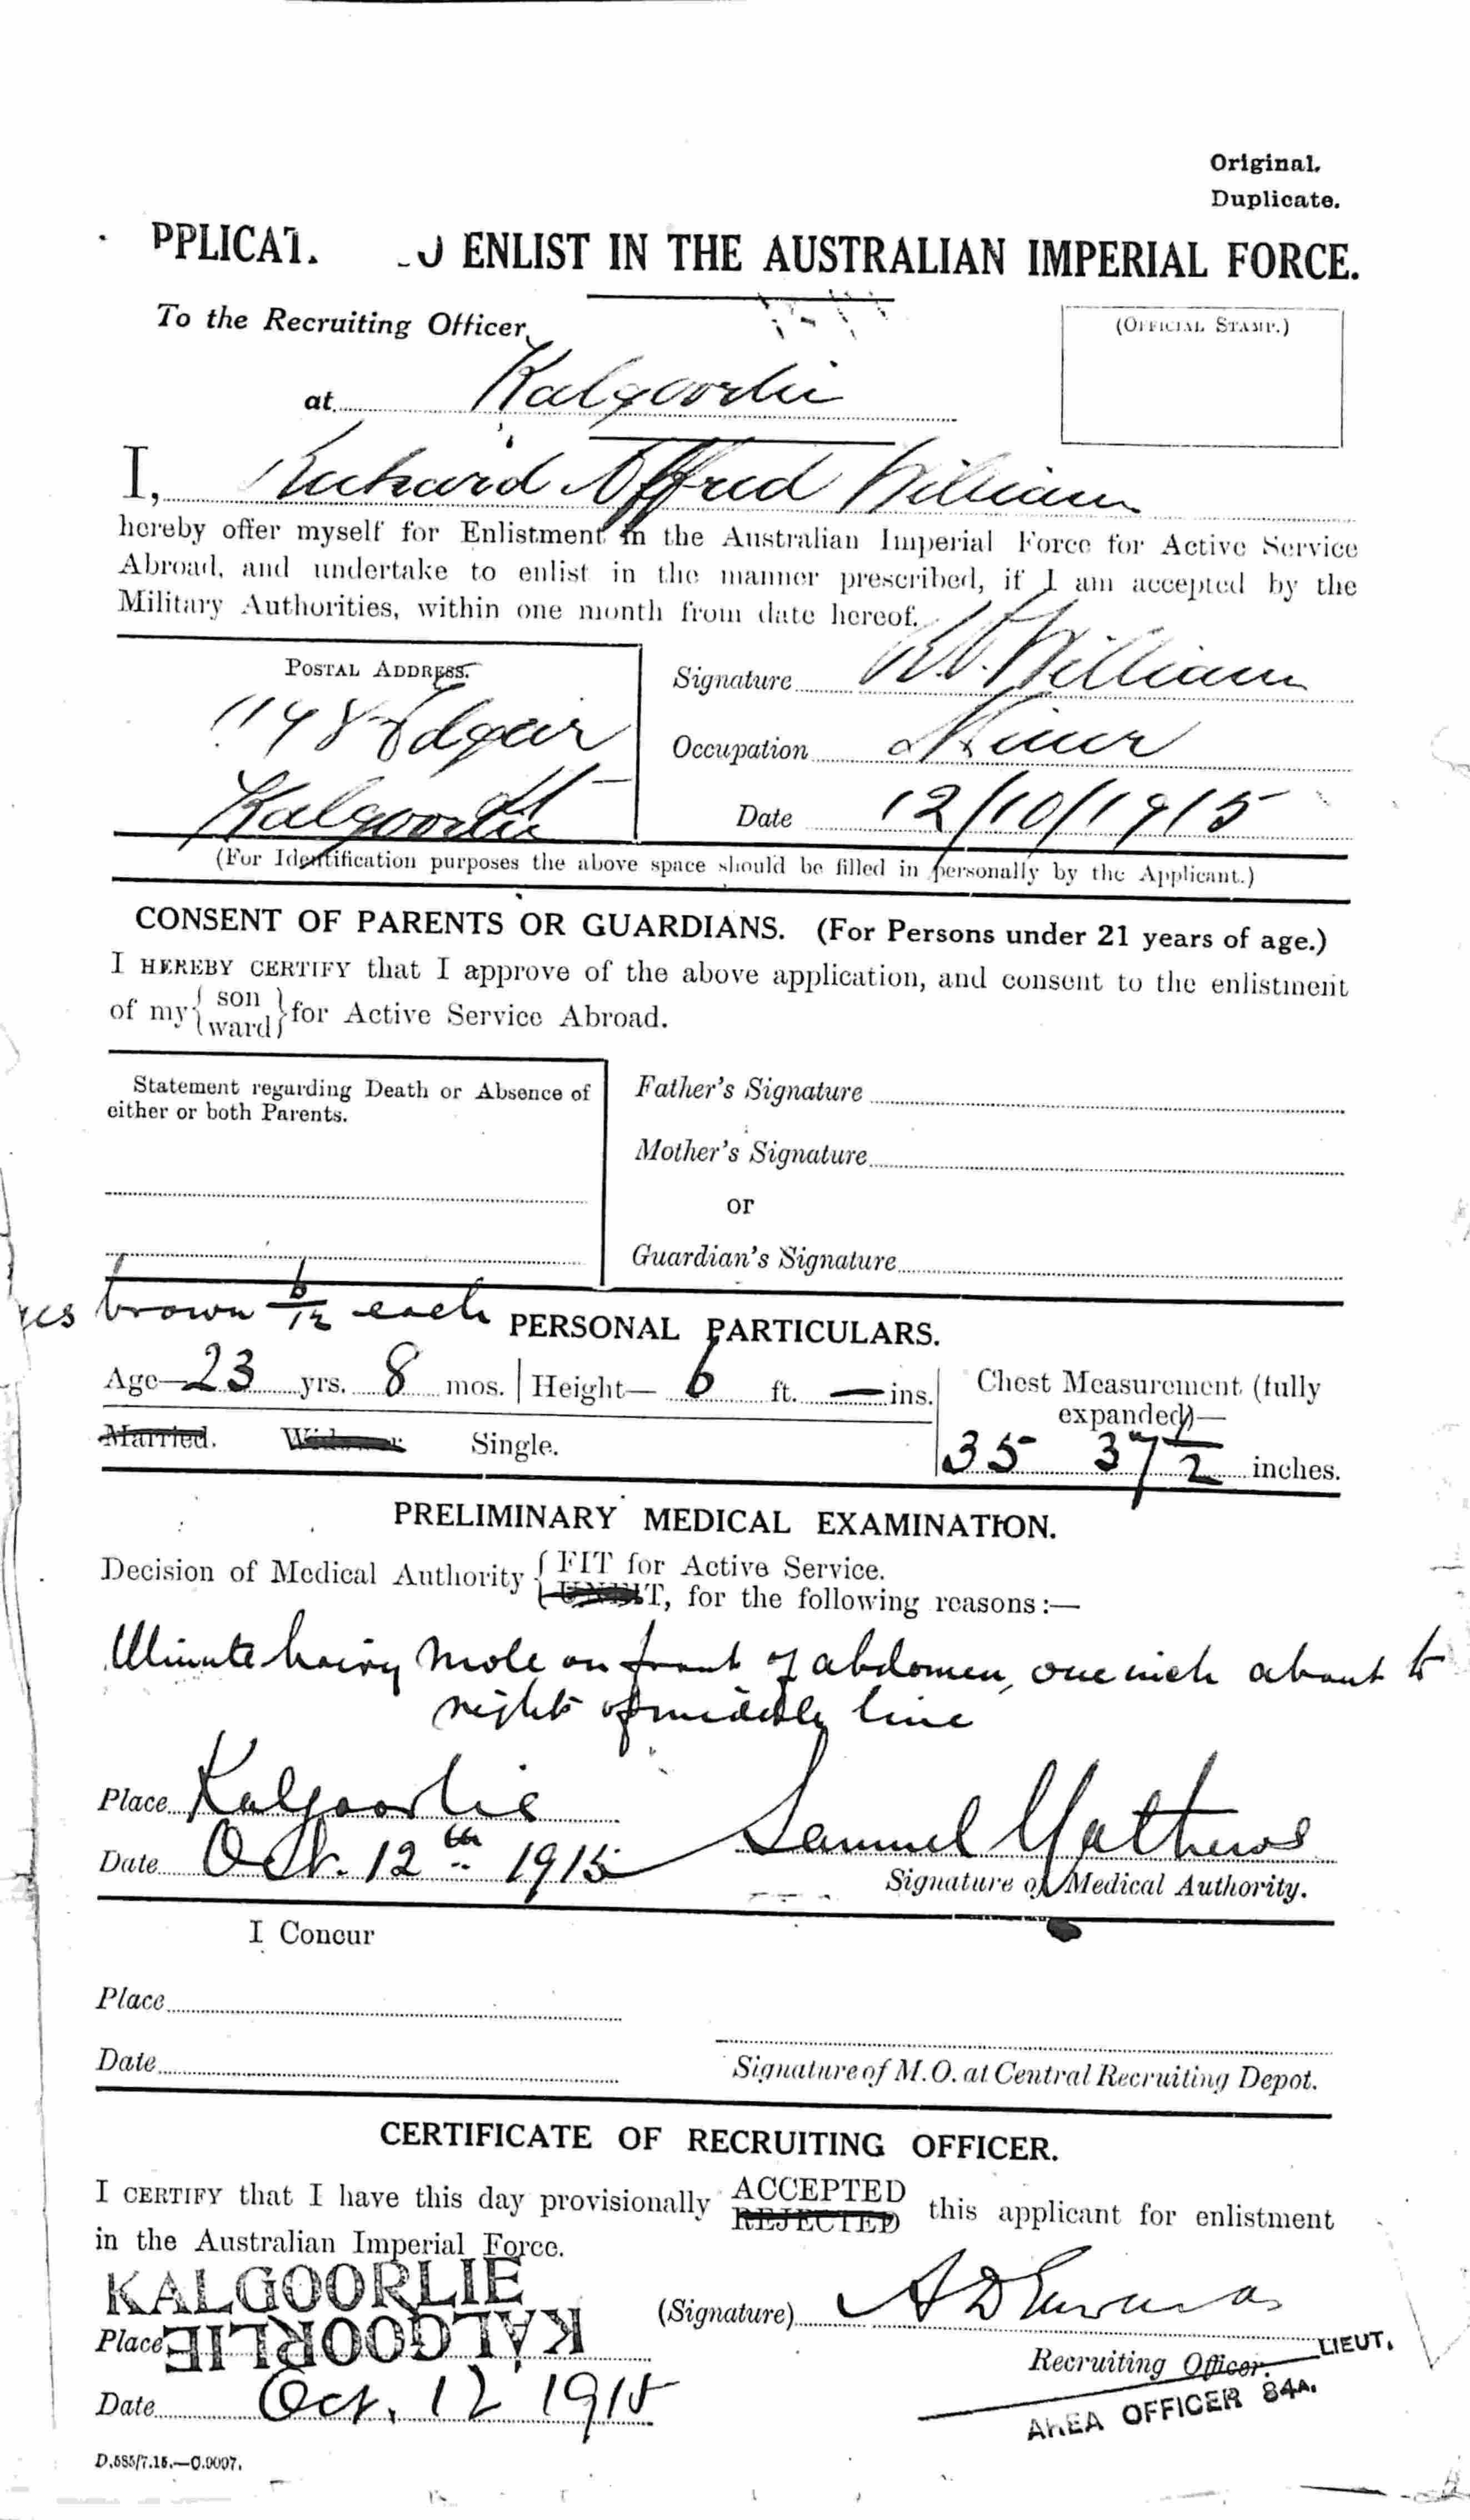 Original.
Duplicate.
PPLICAT. O ENLIST IN THE AUSTRALIAN IMPERIAL FORCE.
To the Recruiting Officer,
(OFFICIAL STAMP.)
at Kalgoorlie
I, Richard Alfred William
hereby offer myself for Enlistment in the Australian Imperial Force for Active Service
Abroad, and undertake to enlist in the manner prescribed, if I am accepted by the
Military Authorities, within one month from date hereof.
POSTAL ADDRESS.
148 Edgar St
Kalgoorlie
Signature R.A. William
Occupation Miner
Date 12/10/1915
(For Identification purposes the above space should be filled in personally by the Applicant.)
CONSENT OF PARENTS OR GUARDIANS. (For Persons under 21 years of age.)
I HEREBY CERTIFY that I approve of the above application, and consent to the enlistment
of my { son ward } for Active Service Abroad.
Statement regarding Death or Absence of
either or both Parents.
Father's Signature
Mother's Signature
or
Guardian's Signature
brown 6/12 each
PERSONAL PARTICULARS.
Age—23 yrs. 8 mos. Height— 6 ft. — ins.
Chest Measurement (fully
expanded)—
35 37 1/2 inches.
Married. Widower Single.
PRELIMINARY MEDICAL EXAMINATION.
Decision of Medical Authority { FIT for Active Service.
UNFIT, for the following reasons:—
Minute hairy mole on front of abdomen, one inch about to
right of middle line
Place Kalgoorlie
Date Oct. 12th 1915
Samuel Mathews
Signature of Medical Authority.
I Concur
Place
Date
Signature of M.O. at Central Recruiting Depot.
CERTIFICATE OF RECRUITING OFFICER.
I CERTIFY that I have this day provisionally ACCEPTED REJECTED this applicant for enlistment
in the Australian Imperial Force.
KALGOORLIE
Place KALGOORLIE
(Signature)
Recruiting Officer. LIEUT.
AREA OFFICER 84A.
Date Oct. 12 1915
D.585/7.15.—C.9007.